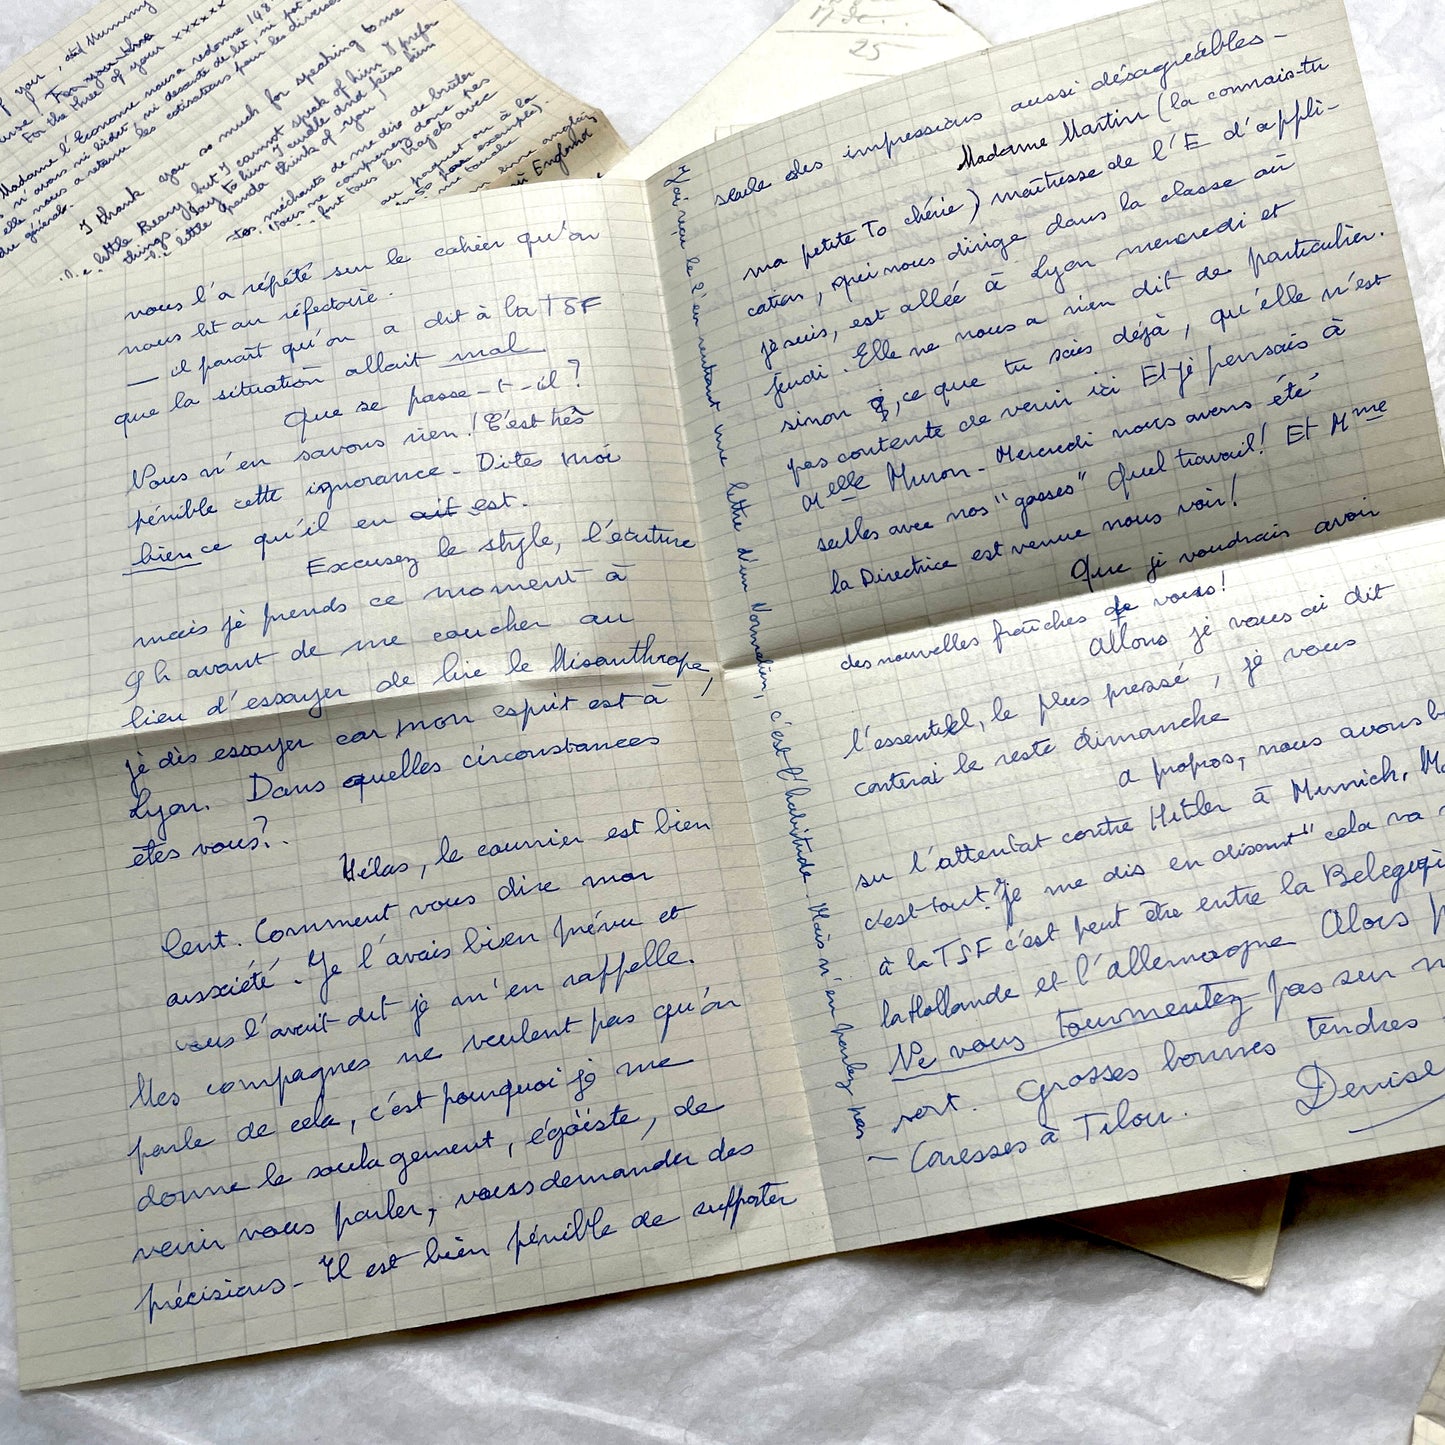 nous l'a répété sur le cahier qu'on
nous lit au réfectoire.
— il paraît qu'on a dit à la TSF
que la situation allait mal
Que se passe-t-il?
Nous n'en savons rien! C'est très
pénible cette ignorance - Dites moi
bien ce qu'il en ait est.
Excusez le style, l'écriture
mais je prends ce moment à
9h avant de me coucher au
lieu d'essayer de lire le Misanthrope,
je dis essayer car mon esprit est à
Lyon. Dans quelles circonstances
êtes vous?.
Hélas, le courrier est bien
lent. Comment vous dire mon
anxiété. Je l'avais bien prévu et
vous l'avait dit je m'en rappelle.
Mes compagnes ne veulent pas qu'on
parle de cela, c'est pourquoi je me
donne le soulagement, égoïste, de
venir vous parler, vous demander des
précisions - Il est bien pénible de supporter
J'ai reçu le l'en rentrant une lettre d'un Normalien, c'est l'habitude. Mais n'en parlez pas
seule des impressions aussi désagréables -
Madame Martin (la connais-tu
ma petite To chérie) maîtresse de l'E d'appli-
cation, qui nous dirige dans la classe où
je suis, est allée à Lyon mercredi et
jeudi. Elle ne nous a rien dit de particulier.
sinon, ce que tu sais déjà, qu'elle n'est
pas contente de venir ici Et je pensais à
Melle Muron - Mercredi nous avons été
seules avec nos "gosses" Quel travail! Et Mme
la Directrice est venue nous voir!
Que je voudrais avoir
des nouvelles fraîches de vous!
Allons je vous ai dit
l'essentiel, le plus pressé, je vous
conterai le reste dimanche
A propos, nous avons
su l'attentat contre Hitler à Munich.
c'est tout. Je me dis en disant "cela va
à la TSF c'est peut être entre la Belgique
la Hollande et l'allemagne Alors
Ne vous tourmentez pas sur
sort. Grosses bonnes tendres
Denise
— Caresses à Tilou.
of your, Mummy
For you
For the three of your xxxxxx
Madame l'Econome nous a redonné 148
n'avons ni bidet, ni descente de lit, ni pot
elle nous a retenu les cotisations pour les diverses
I thank you so much for speaking to me
little Beary, but I cannot speak of him I prefer
things. Say to him I cuddle and kiss him
little Panda think of you!
méchants de me dire de brûler
Vous ne comprenez donc pas
font tous les trajets avec
au parquet ou à la
50 par exemple).
25